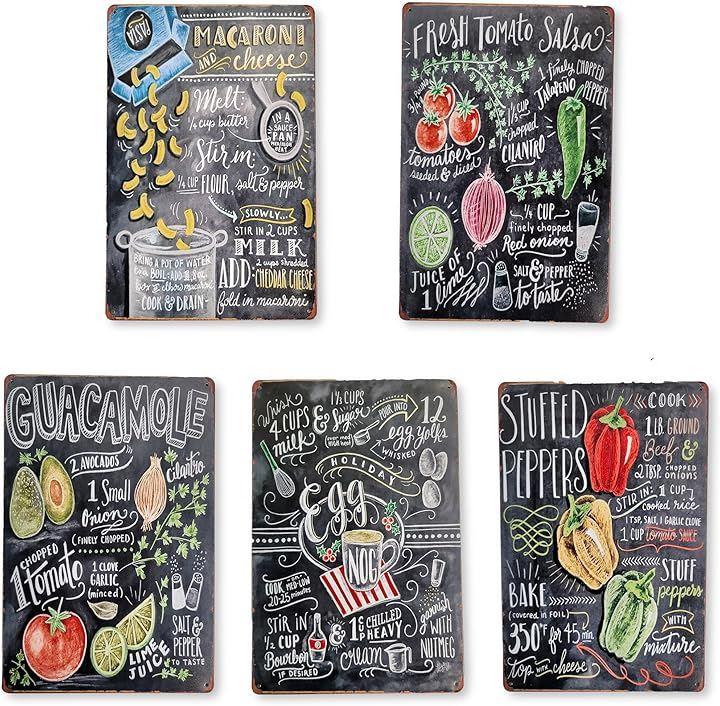 PASTA
MACARONI
AND cheese
Melt:
1/4 cup butter
IN A
SAUCE
PAN
MEDIUM
HEAT
Stir in:
1/4 CUP FLOUR, salt & pepper
SLOWLY...
STIR IN 2 CUPS
MILK
2 cups shredded
ADD CHEDDAR CHEESE
fold in macaroni
BRING A POT OF WATER
to a BOIL: ADD
elbow macaroni
COOK & DRAIN
FRESH TOMATO SALSA
3/4 POUND
tomatoes
seeded & diced
1 finely CHOPPED
JALAPEÑO PEPPER
chopped
CILANTRO
CUP
finely chopped
Red onion
JUICE of
1 lime
SALT & PEPPER
to taste
GUACAMOLE
2 AVOCADOS
1 Small
Onion
(FINELY CHOPPED)
Cilantro
CHOPPED
1 tomato
1 CLOVE
GARLIC
(minced)
LIME
JUICE
SALT &
PEPPER
TO TASTE
whisk
4 CUPS
milk
&
1 1/2 CUPS
Sugar
(over med
POUR INTO
12
egg yolks
WHISKED
HOLIDAY
Egg
NOG
COOK on MED-LOW
20-25 minutes
STIR IN
1/2 CUP
Bourbon
IF DESIRED
&
CHILLED
HEAVY
cream
garnish
WITH
NUTMEG
STUFFED
PEPPERS
COOK
1 LB. GROUND
Beef &
2 TBSP. CHOPPED onions
STIR IN: 1 CUP
cooked rice
1 TSP. SALT, 1 GARLIC CLOVE
1 CUP tomato SAUCE
STUFF
peppers
WITH
mixture
BAKE
(covered in FOIL)
350°F for 45 min.
top with cheese